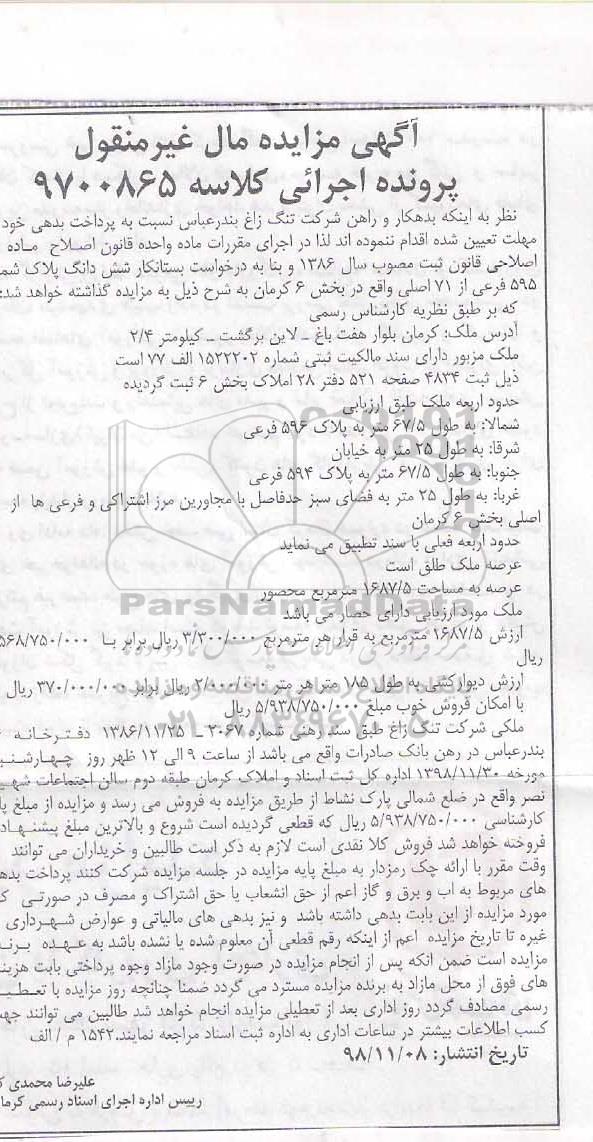 آگهی مزایده مال غیرمنقول
پرونده اجرائی کلاسه ۹۷۰۰۸۶۵
نظر به اینکه بدهکار و راهن شرکت تنگ زاغ بندرعباس نسبت به پرداخت بدهی خود
مهلت تعیین شده اقدام ننموده اند لذا در اجرای مقررات ماده واحده قانون اصلاح ماده
اصلاحی قانون ثبت مصوب سال ۱۳۸۶ و بنا به درخواست بستانکار شش دانگ پلاک
۵۹۵ فرعی از ۷۱ اصلی واقع در بخش ۶ کرمان به شرح ذیل به مزایده گذاشته خواهد شد:
که بر طبق نظریه کارشناس رسمی
آدرس ملک: کرمان بلوار هفت باغ ـ لاین برگشت ـ کیلومتر ۲/۴
ملک مزبور دارای سند مالکیت ثبتی شماره ۱۵۲۲۲۰۲ الف ۷۷ است
ذیل ثبت ۴۸۳۴ صفحه ۵۲۱ دفتر ۲۸ املاک بخش ۶ ثبت گردیده
حدود اربعه ملک طبق ارزیابی
شمالا: به طول ۶۷/۵ متر به پلاک ۵۹۶ فرعی
شرقا: به طول ۲۵ متر به خیابان
جنوبا: به طول ۶۷/۵ متر به پلاک ۵۹۴ فرعی
غربا: به طول ۲۵ متر به فضای سبز حدفاصل با مجاورین مرز اشتراکی و فرعی ها از
اصلی بخش ۶ کرمان
حدود اربعه فعلی با سند تطبیق می نماید
عرصه ملک طلق است
عرصه به مساحت ۱۶۸۷/۵ مترمربع محصور
ملک مورد ارزیابی دارای حصار می باشد
ParsNamadData
ارزش ۱۶۸۷/۵ مترمربع به قرار هر مترمربع ۳/۳۰۰/۰۰۰ ریال برابر با ۵۶۸/۷۵۰/۰۰۰
ریال
ارزش دیوارکشی به طول ۱۸۵ متر هر متر ۲/۰۰۰/۰۰۰ ریال برابر ۳۷۰/۰۰۰/۰۰۰ ریال
با امکان فروش خوب مبلغ ۵/۹۳۸/۷۵۰/۰۰۰ ریال
ملکی شرکت تنگ زاغ طبق سند رهنی شماره ۲۰۶۷ ـ ۱۳۸۶/۱۱/۲۵ دفترخانه
بندرعباس در رهن بانک صادرات واقع می باشد از ساعت ۹ الی ۱۲ ظهر روز چهارشنبه
مورخه ۱۳۹۸/۱۱/۳۰ اداره کل ثبت اسناد و املاک کرمان طبقه دوم سالن اجتماعات
نصر واقع در ضلع شمالی پارک نشاط از طریق مزایده به فروش می رسد و مزایده از مبلغ
کارشناسی ۵/۹۳۸/۷۵۰/۰۰۰ ریال که قطعی گردیده است شروع و بالاترین مبلغ
فروخته خواهد شد فروش کالا نقدی است لازم به ذکر است طالبین و خریداران می توانند
وقت مقرر با ارائه چک رمزدار به مبلغ پایه مزایده در جلسه مزایده شرکت کنند پرداخت
های مربوط به اب و برق و گاز اعم از حق انشعاب یا حق اشتراک و مصرف در صورتی
مورد مزایده از این بابت بدهی داشته باشد و نیز بدهی های مالیاتی و عوارض شهرداری
غیره تا تاریخ مزایده اعم از اینکه رقم قطعی آن معلوم شده یا نشده باشد به عهده
مزایده است ضمن انکه پس از انجام مزایده در صورت وجود مازاد وجوه پرداختی بابت
های فوق از محل مازاد به برنده مزایده مسترد می گردد ضمنا چنانچه روز مزایده با
رسمی مصادف گردد روز اداری بعد از تعطیلی مزایده انجام خواهد شد طالبین می توانند
کسب اطلاعات بیشتر در ساعات اداری به اداره ثبت اسناد مراجعه نمایند.۱۵۴۲ م / الف
تاریخ انتشار: ۹۸/۱۱/۰۸
علیرضا محمدی
رییس اداره اجرای اسناد رسمی